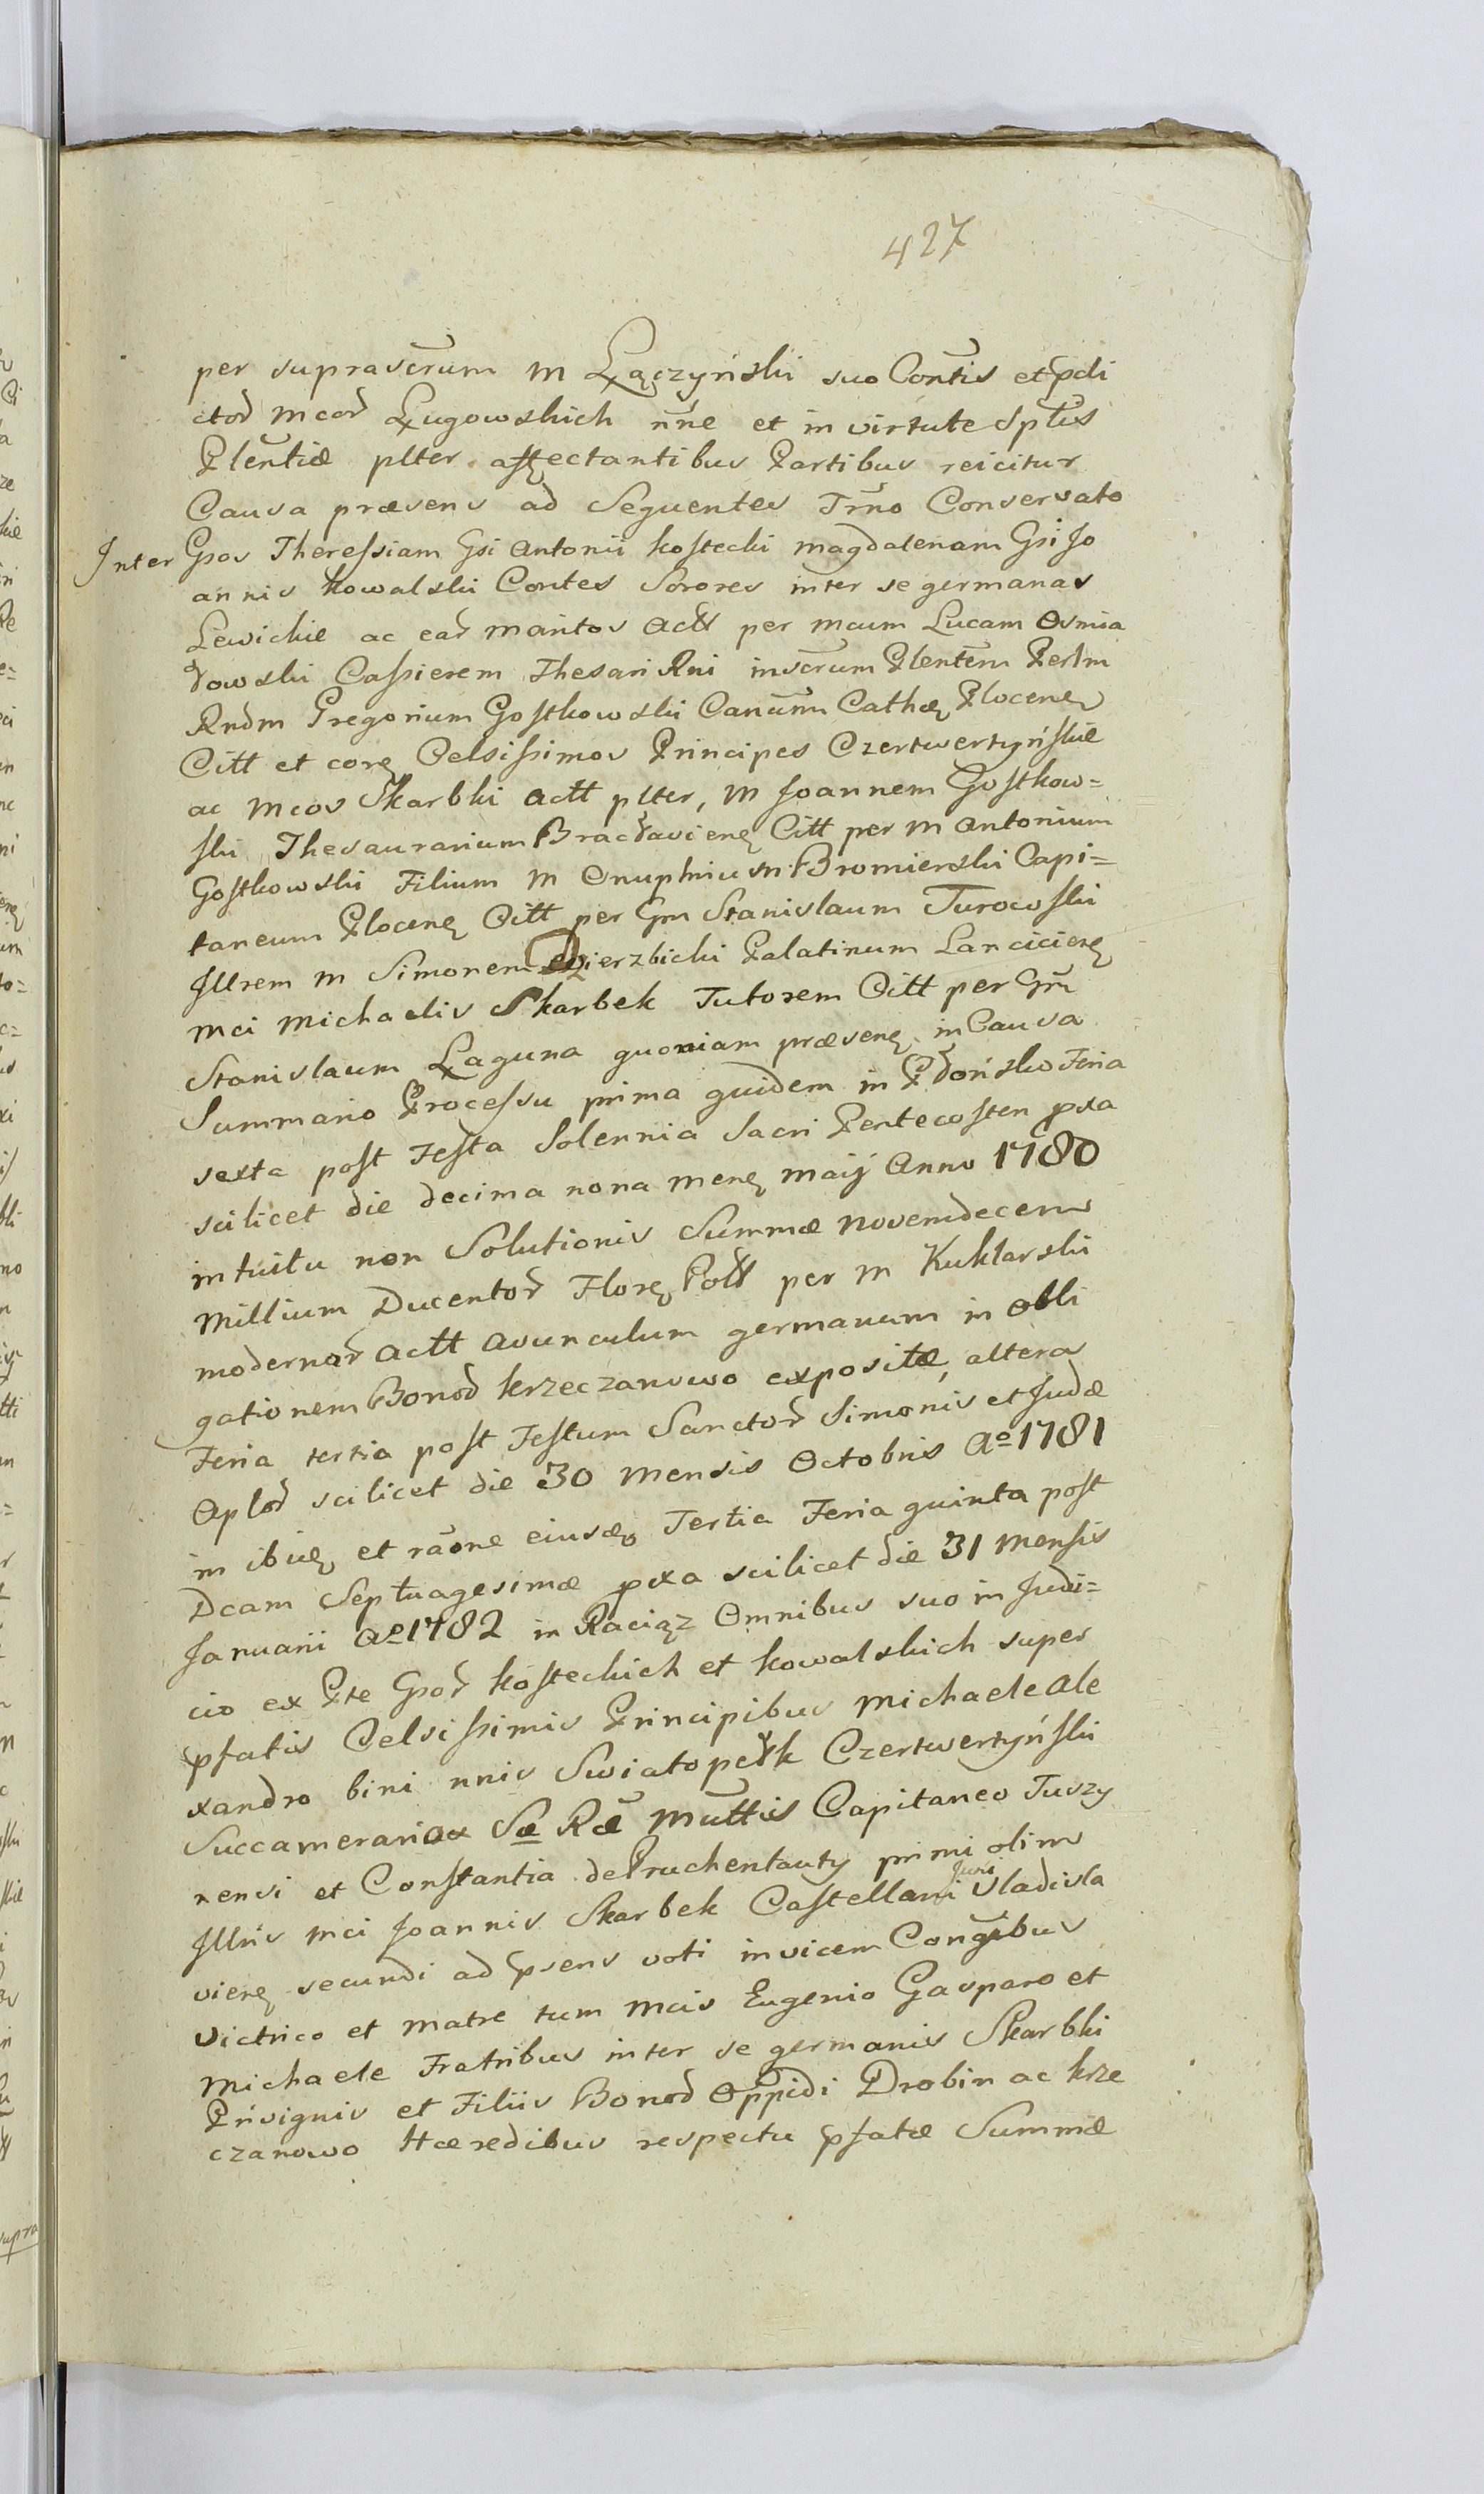 427
per suprascrum M Łączyński suo Contis et pdi
ctoꝝ Mcoꝝ Ługowskich nne et in virtute Spłis
Plentiæ plter affectantibus Partibus reicitur
Causa præsens ad Seguentes Trno Conservato
Inter Gsos Theressiam Gsi Antonii Kostecki Magdalenam Gsi Jo
annis Kowalski Contes Sorores inter se germanas
Lewickie ac eaꝝ maritos Actt per Mcum Lucam Osmia
łowski Cassierem Thesari Rni inscrum Plentem Perlm
Rndm Gregorium Gostkowski Canũm Cathę Plocenę
Citt et corę Celsissimos Principes Czertwertyńskie
ac Mcos Skarbki Actt plter, M Joannem Gostkow=
ski Thesaurarium Bracłavienę Citt per M Antonium
Gostkowski Filium M Onuphrium Bromierski Capi=
taneum Plocenę Citt per Gm Stanislaum Turowski
Illrem M Simonem Dzierzbicki Palatinum Lancicienę
Mci Michaelis Skarbek Tutorem Citt per Gm
Stanislaum Łaguna quoniam præsenę in Causa
Summario Processu prima quidem in Płońsko Feria
sexta post Festa Solennia Sacri Pentecosten pxa
scilicet die decima nona menę Maij Anno 1780
intuitu non Solutionis Summæ Novemdecem
Millium Ducentoꝝ Florę Poll per M Kuklarski
modernoꝝ Actt Avunculum germanum in Obli
gationem Bonoꝝ Krzeczanowo expositæ, altera
Feria tertia post Festum Sanctoꝝ Simonis et Judæ
Aploꝝ scilicet die 30 Mensis Octobris Aº 1781
in ibidę et raone eiusdę Tertia Feria quinta post
Dcam Septuagesimæ pxa scilicet die 31 Mensis
Januarii Aº 1782 in Raciąz Omnibus suo in Judi=
cio ex Pte Gsoꝝ Kosteckich et Kowalskich super
pfatis Celsissimis Principibus Michaele Ale
xandro bini nnis Swiatopełk Czertwertyński
Succamerario Sæ Ræ Mttis Capitaneo Tuszy
nensi et Constantia de Pruchentauty primi olim
Illris Mci Joannis Skarbek Castellani Juni Vladisla
vienę secundi ad psens voti invicem Congibus
Victrico et Matre tum Mcis Eugenio Gasparo et
Michaele Fratribus inter se germanis Skarbki
Privignis et Filiis Bonoꝝ Oppidi Drobin ac Krze
czanowo Hæredibus respectu pfatæ Summæ